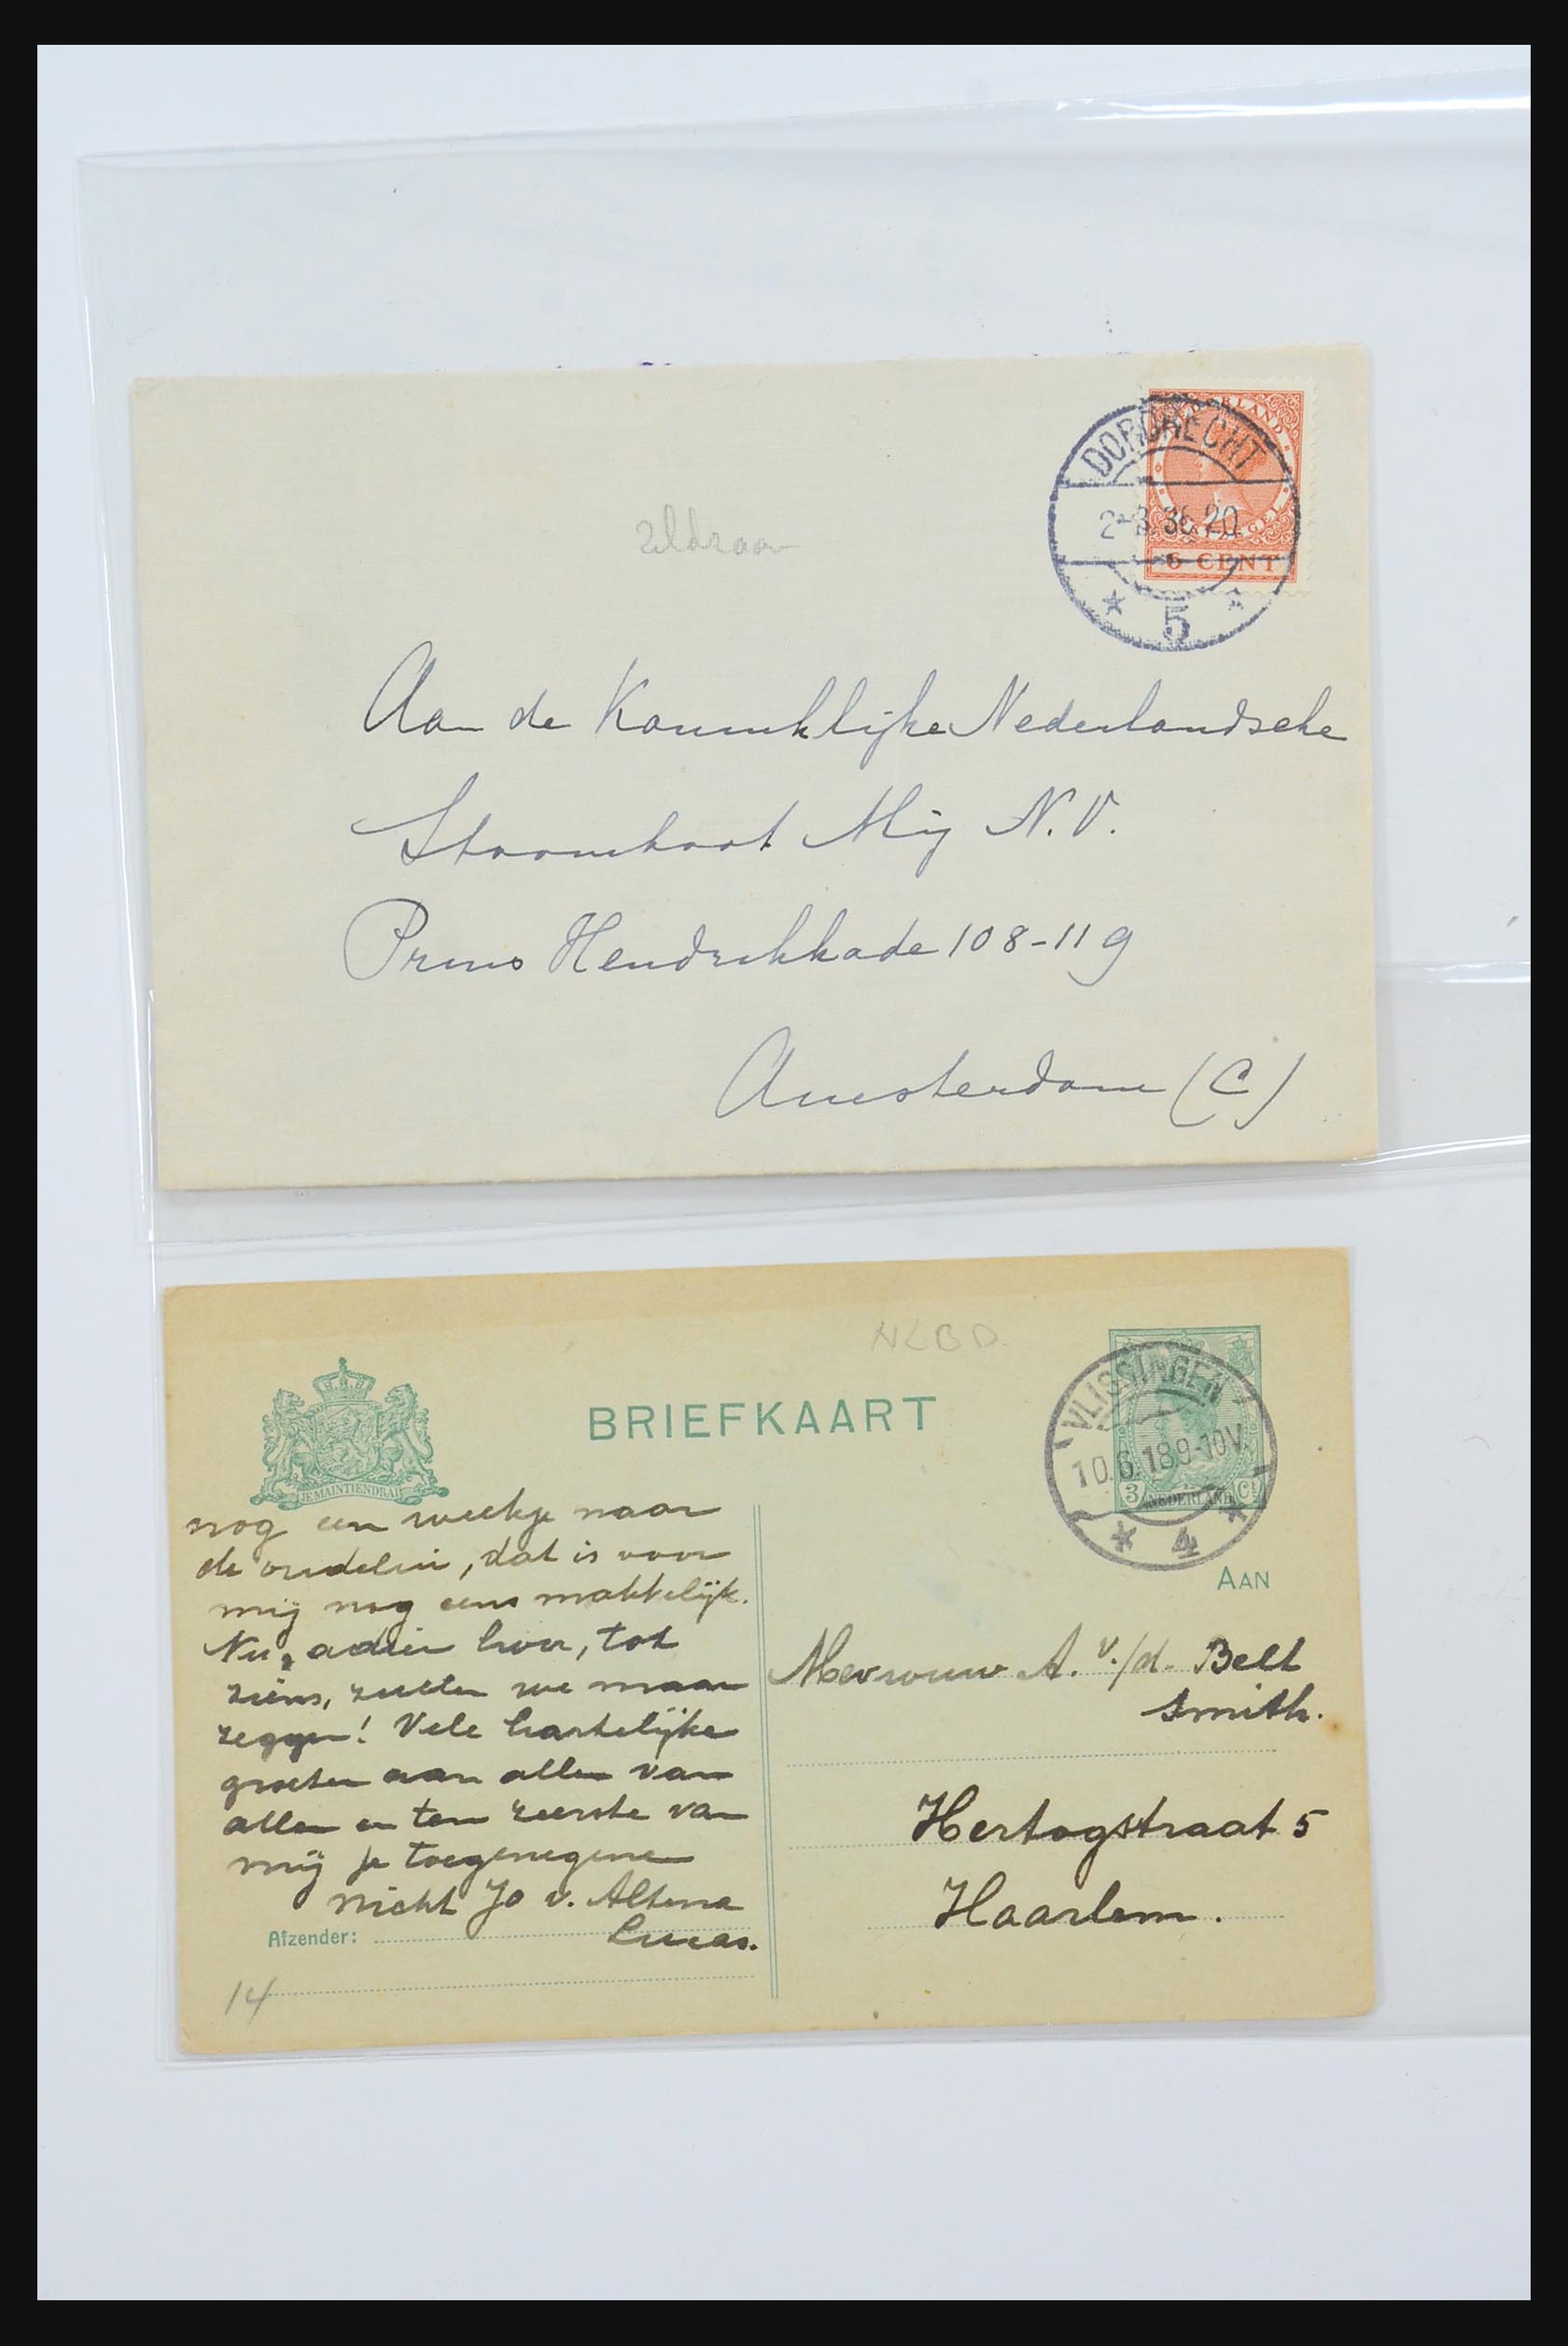 NEDERLAND
6 CENT
DORDRECHT
2-3.36.20
5
Aan de Koninklijke Nederlandsche
Stoomboot Mij N.V.
Prins Hendrikkade 108-119
Amsterdam (C)
NLBD
BRIEFKAART
JE MAINTIENDRAI
VLISSINGEN
10.6.18 9-10V.
4
3 NEDERLAND Ct
AAN
nog een weekje naar
de oudelui, dat is voor
mij nog eens makkelijk.
Nu, adieu hoor, tot
ziens, zullen we maar
zeggen! Vele hartelijke
groeten aan allen van
allen en ten zeerste van
mij je toegenegene
nicht Jo v. Altena
Lucas.
Afzender:
14
Mevrouw A. v./d. Belt
Smith.
Hertogstraat 5
Haarlem.